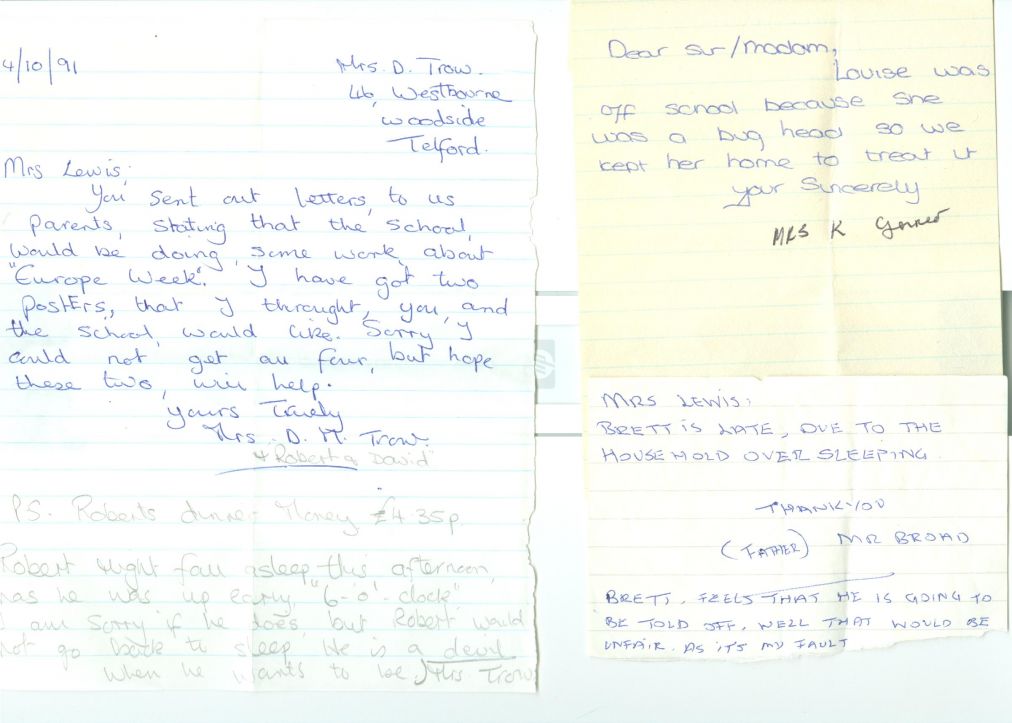 4/10/91
Mrs. D. Trow.
46, Westbourne
Woodside
Telford.
Mrs Lewis,
You sent out letters, to us
parents, stating that the school,
would be doing, some work, about
"Europe Week". I have got two
posters, that I throught, you, and
the school, would like. Sorry I
could not get all four, but hope
these two, will help.
Yours Truely
Mrs. D. M. Trow.
+ Robert & David"
P.S. Roberts dinner Money £4.35p.
Robert Might fall asleep this, afternoon,
has he was up early, "6-o'-clock"
I am sorry if he does, but Robert would
not go back to sleep. He is a devil
when he wants to be. Mrs. Trow
Dear sir/madam,
Louise was
off school because she
was a bug head so we
kept her home to treat it
your Sincerely
MRS K
MRS LEWIS;
BRETT IS LATE, DUE TO THE
HOUSEHOLD OVER SLEEPING.
THANK-YOU
(FATHER) MR BROAD
BRETT. FEELS THAT HE IS GOING TO
BE TOLD OFF, WELL THAT WOULD BE
UNFAIR. AS IT'S MY FAULT